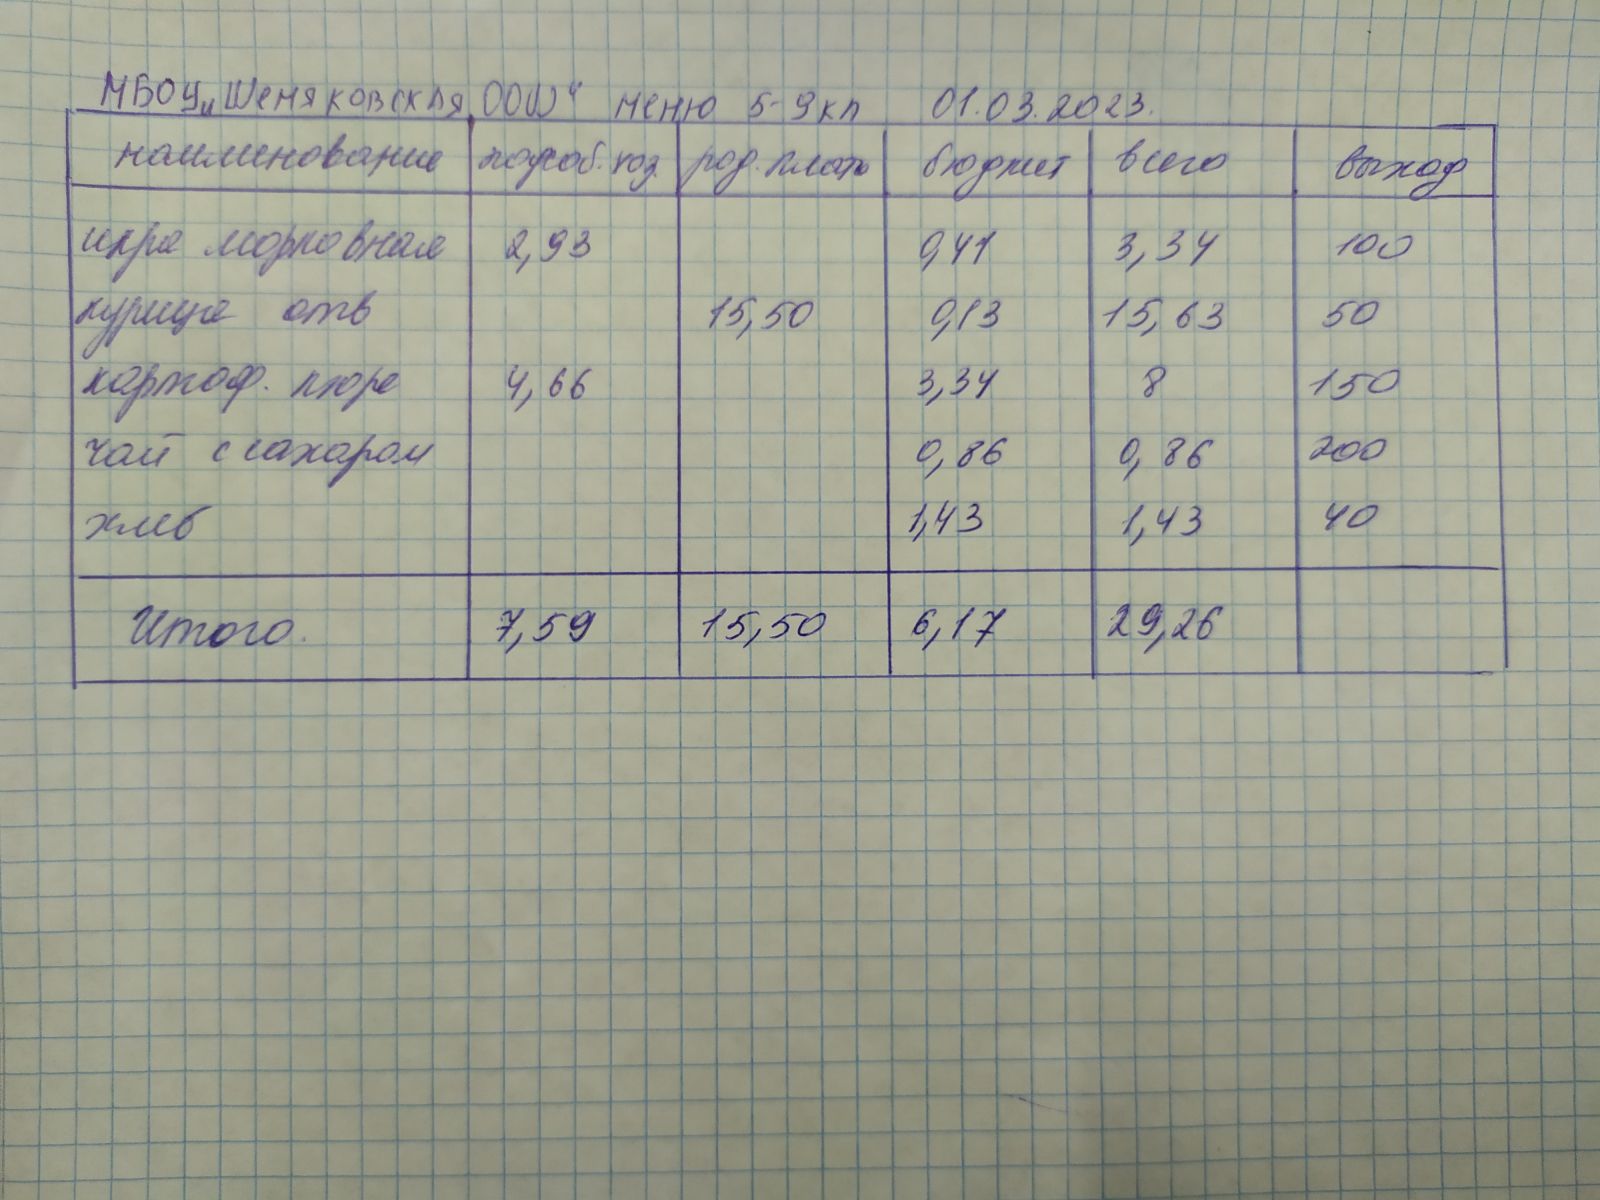 МБОУ „Шеняковская ООШ" меню 5-9 кл 01.03.2023.
наименование подсоб. хоз род. плата бюджет всего выход
икра морковная 2,93 0,41 3,34 100
курица отв 15,50 0,13 15,63 50
картоф. пюре 4,66 3,34 8 150
чай с сахаром 0,86 0,86 200
хлеб 1,43 1,43 40
Итого. 7,59 15,50 6,17 29,26